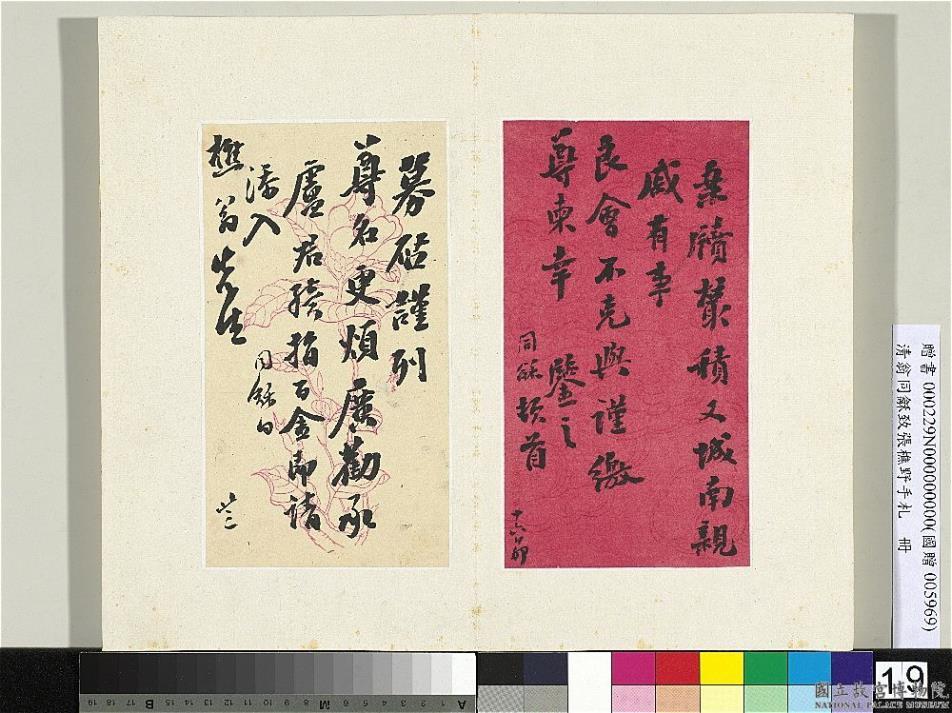 案牘叢積又城南親
戚有事
良會不克與謹繳
尊柬幸
鑒之
同龢頓首
十六卯
募啟謹列
尊名更煩廣勸承
盧君續指百金即請
添入
樵翁先生
同龢白
廿二
贈書 000229N000000000(國贈 005969)
清翁同龢致張樵野手札 冊
19
國立故宮博物院
NATIONAL PALACE MUSEUM